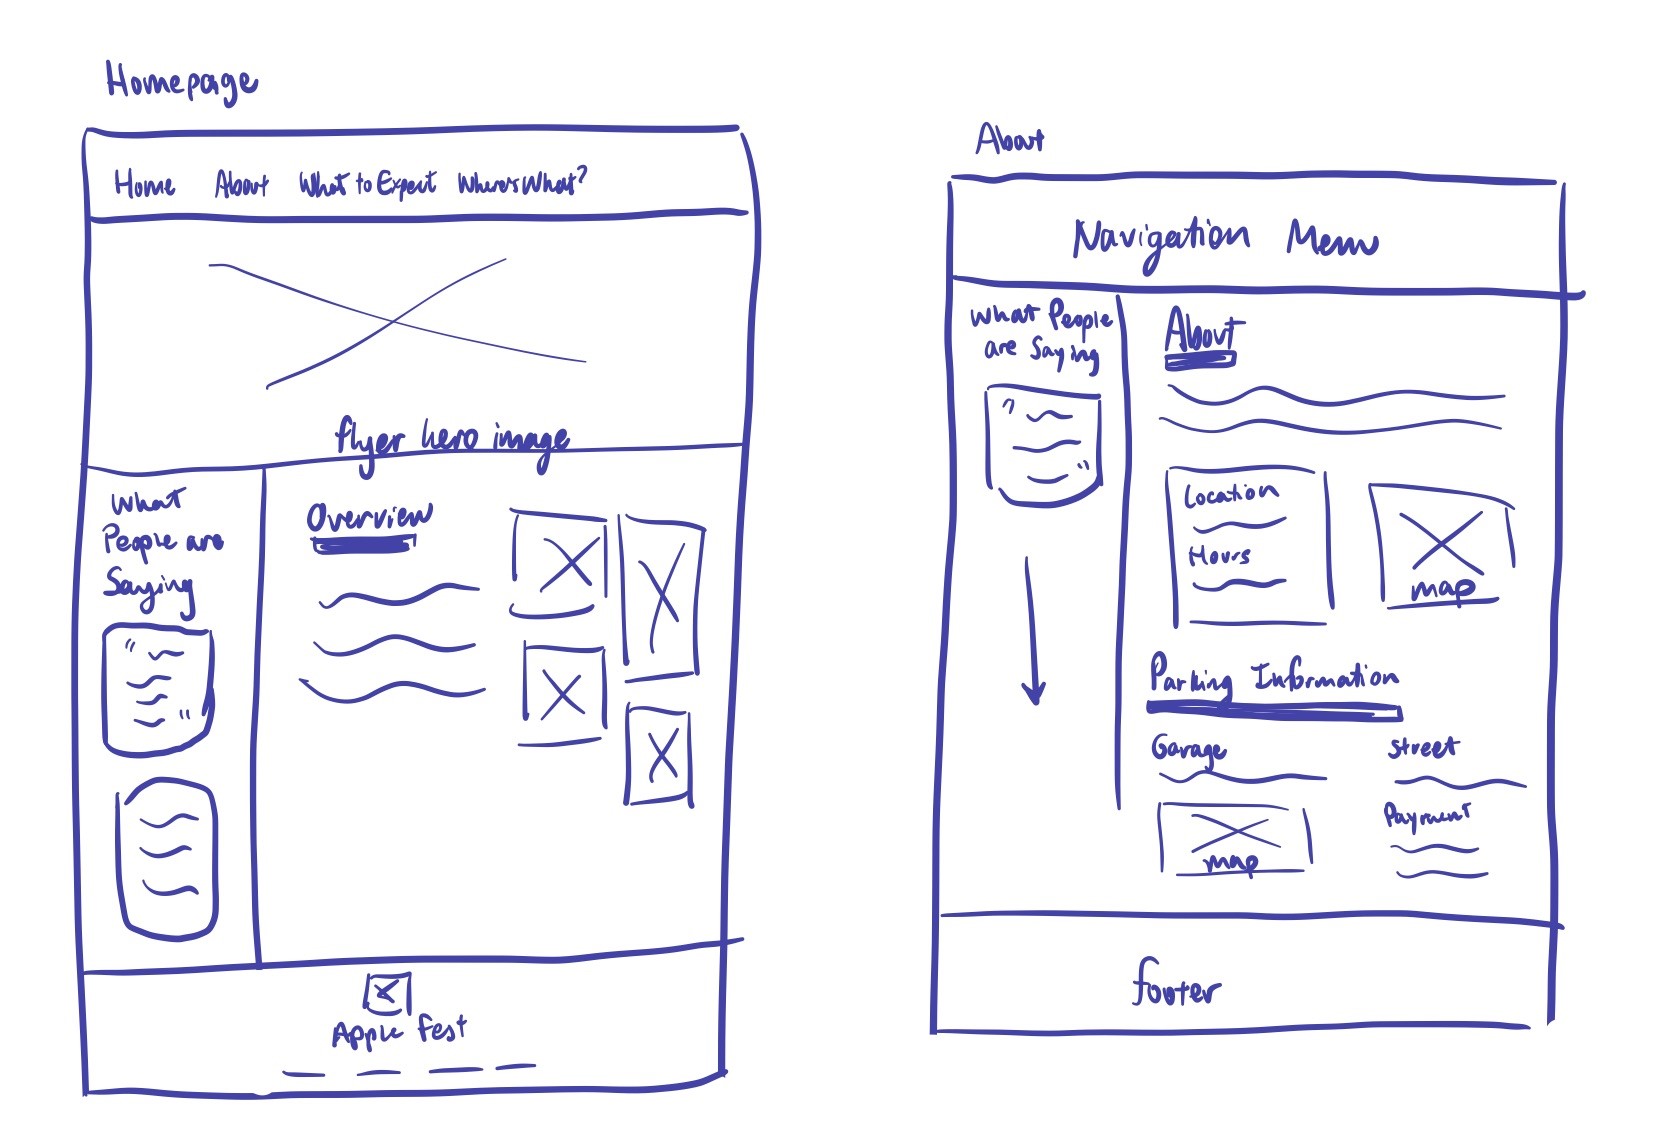 Homepage
Home About What to Expect Where's What?
flyer hero image
What
People are
Saying
Overview
Apple Fest
About
Navigation Menu
What People
are Saying
About
Location
Hours
map
Parking Information
Garage
map
Street
Payment
footer